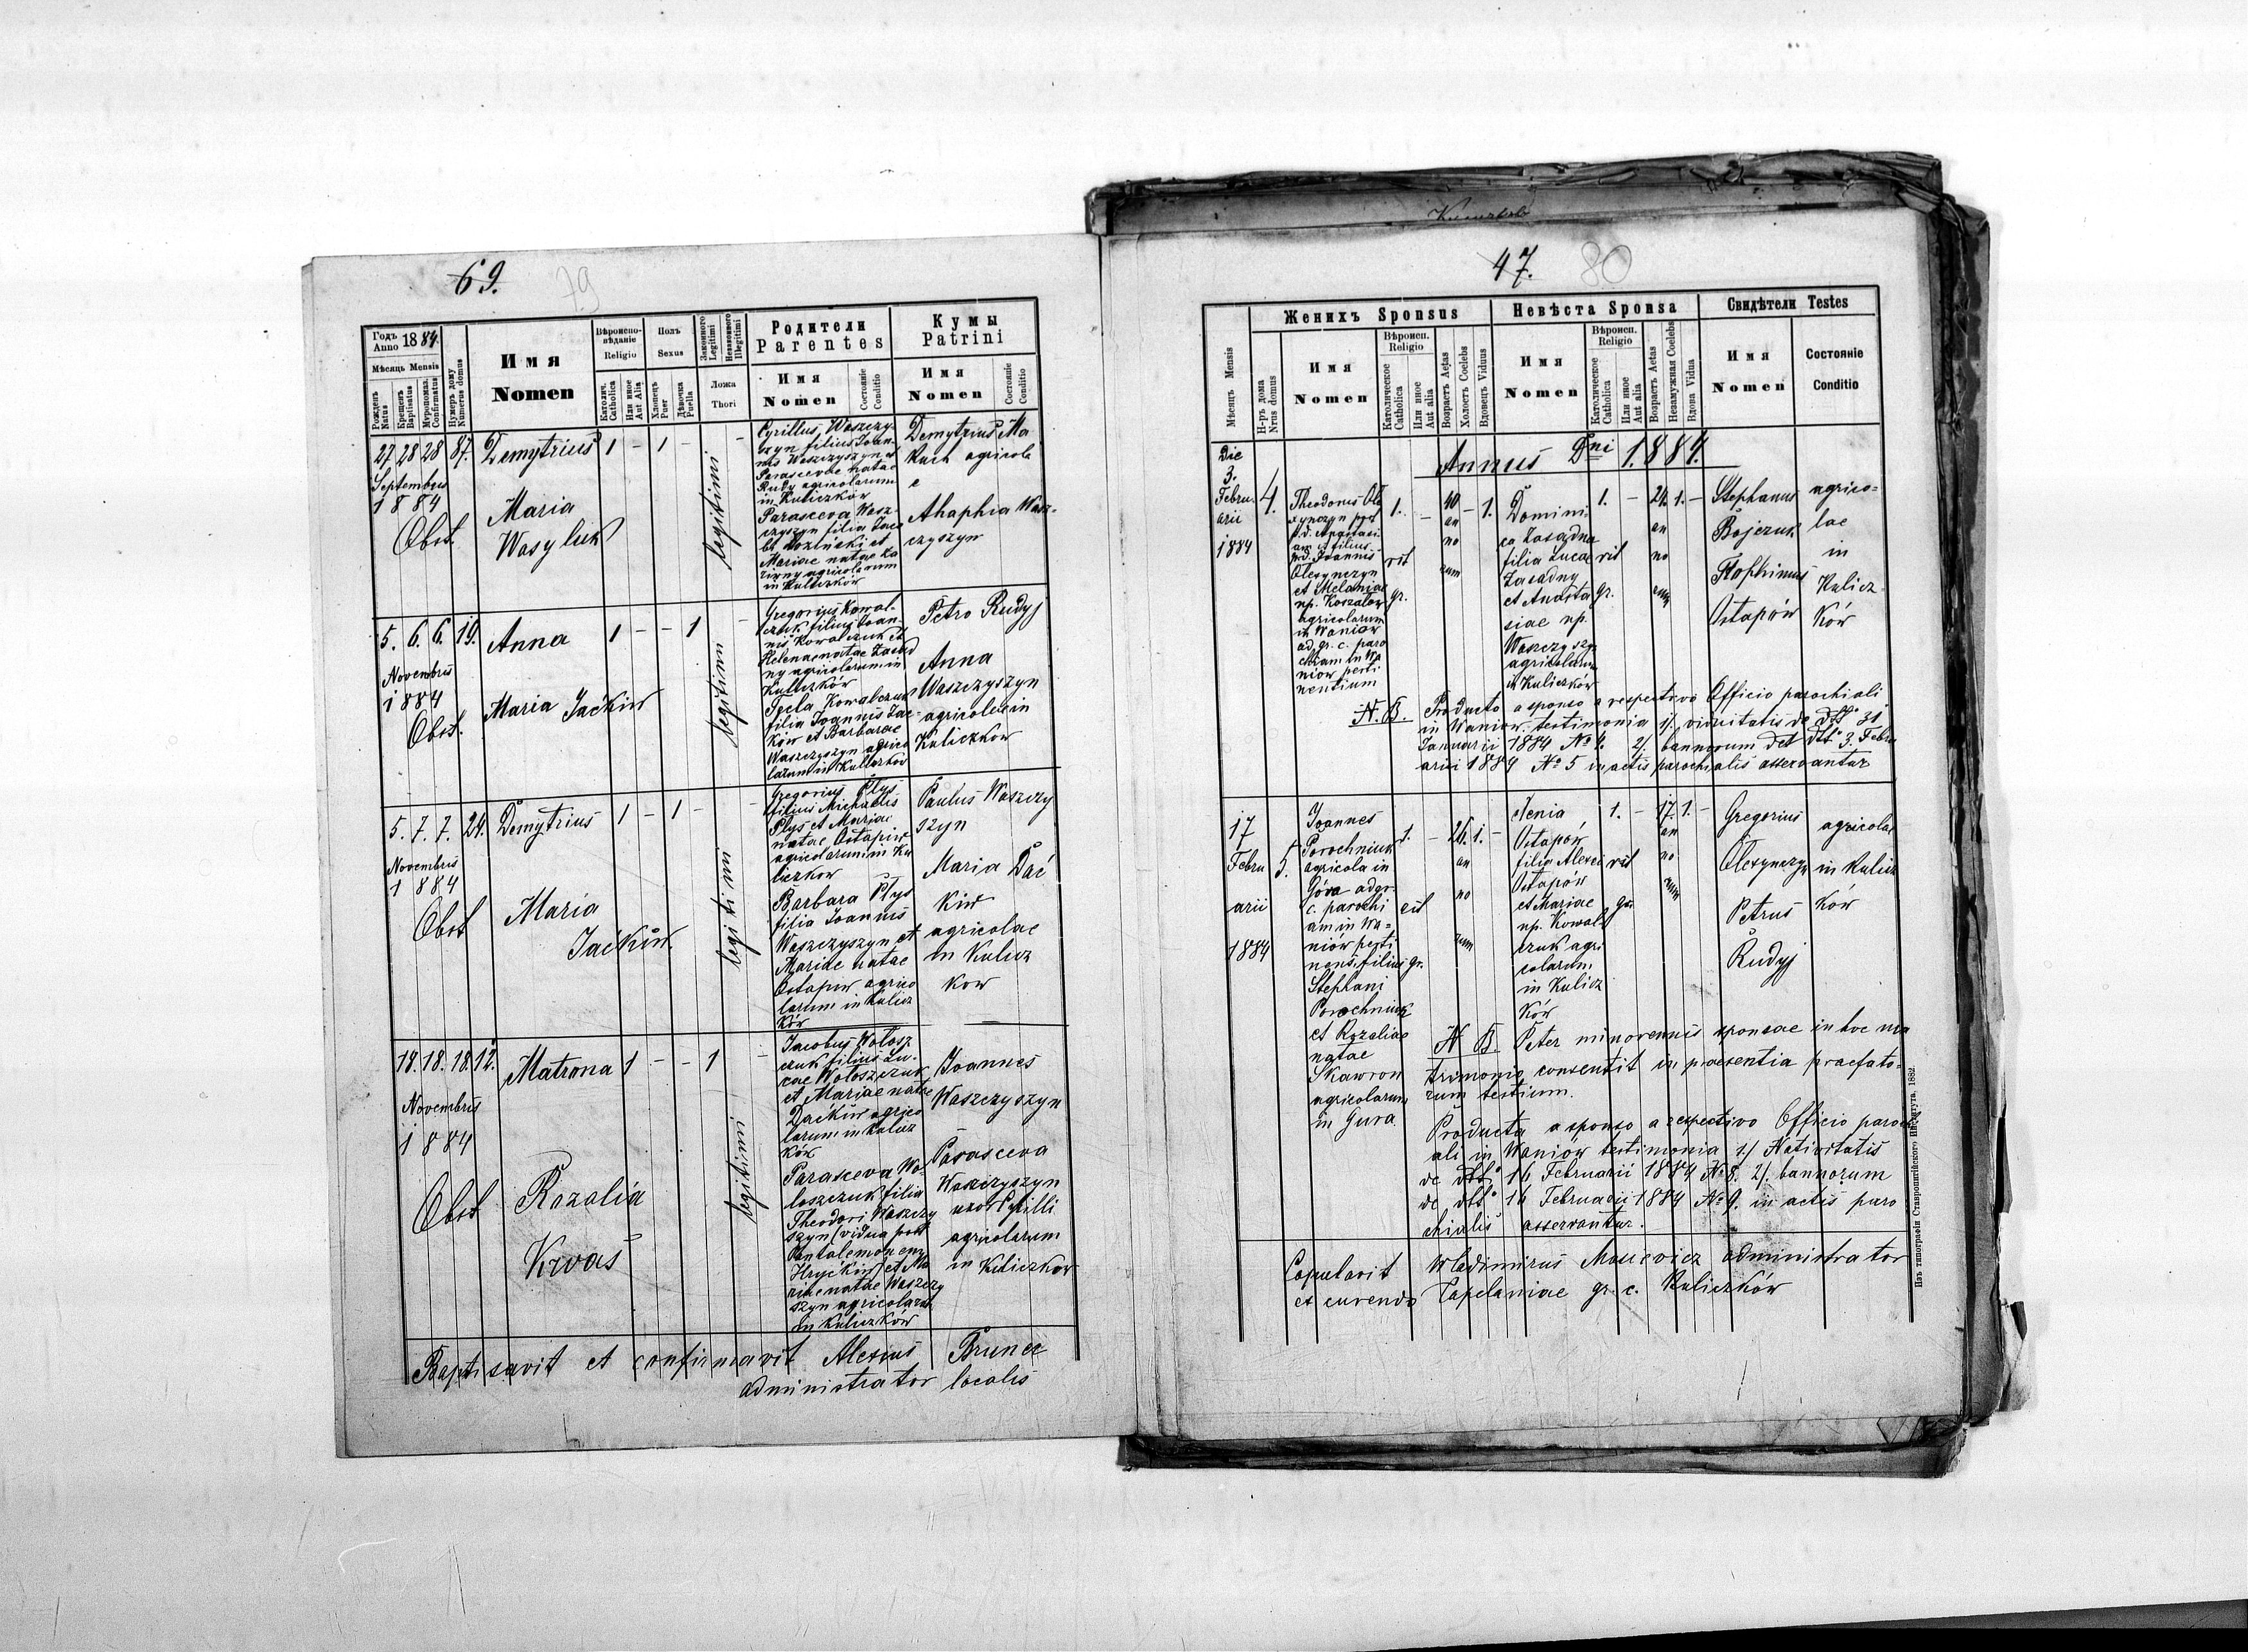 69.
79
Годъ
Anno 1884.
Мѣсяць Mensis
Рожденъ
Natus
Крещенъ
Baptisatus
Мѵропомаз.
Confirmatus
Нумеръ дому
Numerus domus
Имя
Nomen
Вѣроиспо-
вѣданіе
Religio
Католич.
Catholica
Или иное
Aut Alia
Полъ
Sexus
Хлопецъ
Puer
Дѣвочка
Puella
Законного
Legitimi
Незаконного
Illegitimi
Ложа
Thori
Родители
Parentes
Имя
Nomen
Состояніе
Conditio
Кумы
Patrini
Имя
Nomen
Состояніе
Conditio
27 28 28 87. Demytrius 1 - 1 - -
Septembris
1884
Obst.
Maria
Wasyluk
legitimi
Cyrillus Waszczy-
szyn filius Joan-
nis Waszczyszyn et
Parascevae natae
Rudy agricolarum
in Kuliczków
Parasceva Wasz-
czyszyn filia Jaco
bi Łoziński et
Mariae natae
agricolarum
in Kuliczków
Demytrius Ma
kuch agricola
e
Ahaphia Wasz-
czyszyn
5. 6. 6. 19. Anna 1 - - 1 -
Novembris
1884
Obst.
Maria Jaćkiw
legitimi
Gregorius Kowal-
czuk filius Joan-
nis Kowalczuk et
Helenae natae Zasad
ny agricolarum in
Kuliczków
Tecla Kowalczuk
filia Joannis Jać-
ków et Barbarae
Waszczyszyn agrico
larum in Kuliczków
Petro Rudyj
Anna
Waszczyszyn
agricolae in
Kuliczkow
5. 7. 7. 24. Demytrius 1 - 1 - -
Novembris
1884
Obst
Maria
Jaćkiw.
legitimi
Gregorius Płys
filius Michaelis
Płys et Mariae
natae Ostapiw
agricolarum in Ku
liczkow
Barbara Płys
filia Joannis
Waszczyszyn et
Mariae natae
Ostapow agrico
larum in Kulicz
ków
Paulus Waszczy
szyn
Maria Dać
kiw
agricolae
in Kulicz
kow
14. 18. 18. 12. Matrona 1 - - 1 -
Novembris
1884
Obst
Rozalia
Krvaś
legitimi
Jacobus Wołosz
czuk filius Lu-
cae Wołoszczuk
et Mariae natae
Daćkiw agrico
larum in Kulicz
ków
Parasceva Wo-
łoszczuk filia
Theodori Waszczy
szyn (vidua post
Pantalemonem
Hryćkiw) et Ma
riae natae Waszczy
szyn agricolarum
in Kuliczków
Joannes
Waszczyszyn
Parasceva
Waszczyszyn
uxor Cyrilli
agricolarum
in Kuliczkow
Baptisavit et confirmavit Alexius Bruner
administrator localis
47.
80
Мѣсяць Mensis
Н-ръ дома
Nrus domus
Женихъ Sponsus
Имя
Nomen
Вѣроисп.
Religio
Католическое
Catholica
Или иное
Aut alia
Возрастъ Aetas
Холостъ Coelebs
Вдовецъ Viduus
Невѣста Sponsa
Имя
Nomen
Вѣроисп.
Religio
Католическое
Catholica
Или иное
Aut alia
Возрастъ Aetas
Незамужная Coelebs
Вдова Vidua
Свидѣтели Testes
Имя
Nomen
Состояніе
Conditio
Annus Dni 1884.
Die
3.
Febru-
arii
1884
4.
Theodorus Ole
xynczyn
p.d. Anastasi
filius
Joannis
Olesynczyn
et Melaniae
np. Koszalow
agricolarum
in Waniow
ad gr. c. paro
chiam in Wa
niow perti
nentium
1. - 40 - 1.
rit
gr.
an
no
rum
Domini
ca Zasadna
filia Lucae
Zasadny
et Anasta
siae np.
Waszczyszyn
agricolarum
in Kuliczków
1. - 24. 1. -
rit
gr.
an
no
rum
Stephanus
Bojczuk
Ostapów
agrico-
lae
in
Kulicz
ków
N. B. Producto a sponso a respectivo Officio parochiali
in Waniow testimonia 1/. viduitatis de dtto 31
Januarii 1884 No 4. 2/. bannorum det dtto 3. Febru
arii 1884 No 5 in actis parochialis asservantur
17
Febru
arii
1884
5.
Joannes
Porochniuk
agricola in
Góra ad gr.
c. parochi
am in Wa-
niów perti
nens, filius
Stephani
Porochniuk
et Rozaliae
natae
Skawron
agricolarum
in Gura
1. - 26. 1. -
rit
gr.
an
no
rum
Xenia
Ostapów
filia Alexii
Ostapów
et Mariae
np. Kowal
czuk agri
colarum
in Kulicz
ków
1. - 17. 1. -
rit
gr.
an
no
rum
Gregorius
Olexynczyn
Petrus
Rudyj
agricolae
in Kulicz
ków
N B. Pater minorennis sponsae in hoc ma
trimonio consentit in praesentia praefato-
rum testium.
Producta a sponso a respectivo Officio paroch
ali in Waniow testimonia 1./ Nativitatis
de dtto 16 Februarii 1884 No 8. 2/. bannorum
de dtto 16 Februarii 1884 No 9. in actis paro
chialis asservantur.
Copulavit Wladimirus Mosiewicz administrator
et currendo Capelaniae gr. c. Kuliczków
Изъ типографіи Ставропигійского Института. 1882.